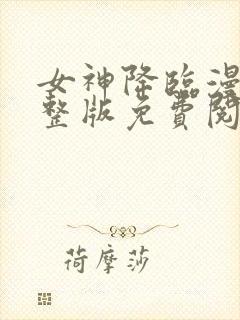 女神降临漫
整版免費閱
荷摩莎